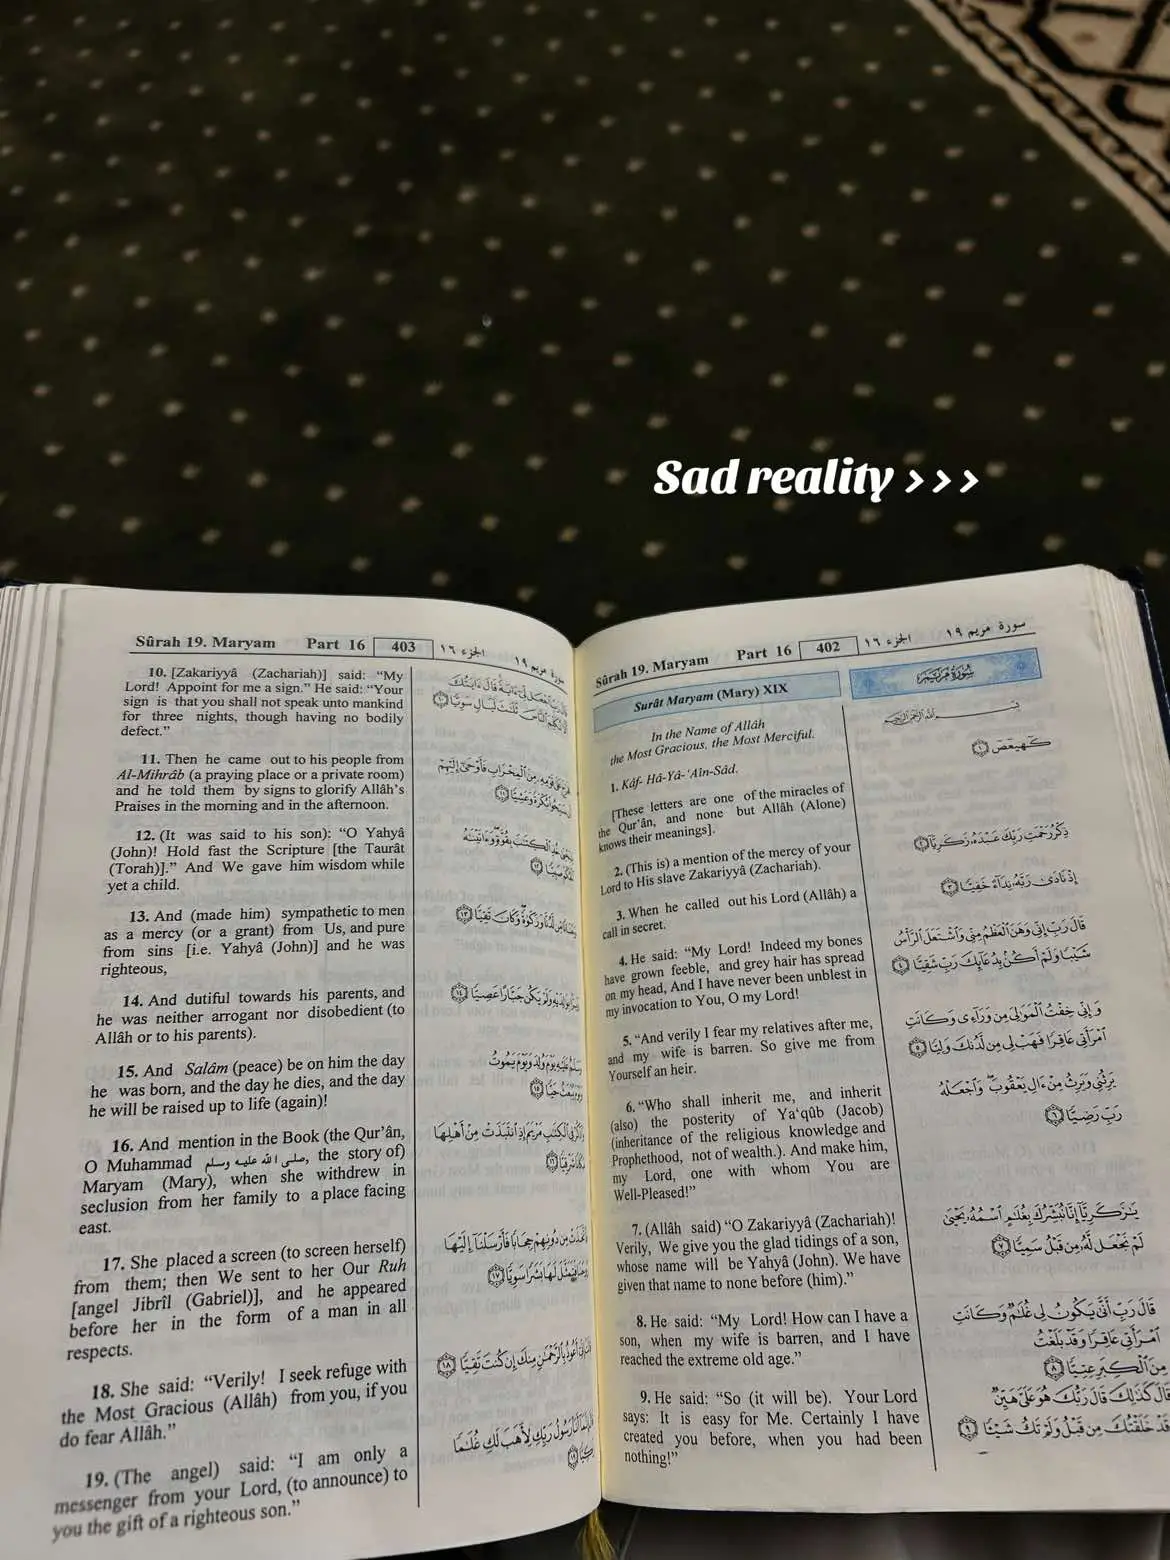 Sad reality >>>
سورة مريم ١٩
الجزء ١٦
402
Part 16
Sûrah 19. Maryam
سُورَةُ مَرْيَمَ
Surât Maryam (Mary) XIX
In the Name of Allâh
the Most Gracious, the Most Merciful.
1. Kâf- Hâ-Yâ-‘Aîn-Sâd.
[These letters are one of the miracles of
the Qur’ân, and none but Allâh (Alone)
knows their meanings].
2. (This is) a mention of the mercy of your
Lord to His slave Zakariyyâ (Zachariah).
3. When he called out his Lord (Allâh) a
call in secret.
4. He said: “My Lord! Indeed my bones
have grown feeble, and grey hair has spread
on my head, And I have never been unblest in
my invocation to You, O my Lord!
5. “And verily I fear my relatives after me,
and my wife is barren. So give me from
Yourself an heir.
6. “Who shall inherit me, and inherit
(also) the posterity of Ya‘qûb (Jacob)
(inheritance of the religious knowledge and
Prophethood, not of wealth.). And make him,
my Lord, one with whom You are
Well-Pleased!”
7. (Allâh said) “O Zakariyyâ (Zachariah)!
Verily, We give you the glad tidings of a son,
whose name will be Yahyâ (John). We have
given that name to none before (him).”
8. He said: “My Lord! How can I have a
son, when my wife is barren, and I have
reached the extreme old age.”
9. He said: “So (it will be). Your Lord
says: It is easy for Me. Certainly I have
created you before, when you had been
nothing!”
بِسْمِ اللَّهِ الرَّحْمَٰنِ الرَّحِيمِ
كٓهيعٓصٓ ١
ذِكْرُ رَحْمَتِ رَبِّكَ عَبْدَهُ زَكَرِيَّآ ٢
إِذْ نَادَىٰ رَبَّهُ نِدَآءً خَفِيًّا ٣
قَالَ رَبِّ إِنِّي وَهَنَ الْعَظْمُ مِنِّي وَاشْتَعَلَ الرَّأْسُ
شَيْبًا وَلَمْ أَكُنْ بِدُعَآئِكَ رَبِّ شَقِيًّا ٤
وَإِنِّي خِفْتُ الْمَوَٰلِيَ مِن وَرَآءِى وَكَانَتِ
امْرَأَتِي عَاقِرًا فَهَبْ لِي مِن لَّدُنكَ وَلِيًّا ٥
يَرِثُنِي وَيَرِثُ مِنْ ءَالِ يَعْقُوبَ وَاجْعَلْهُ
رَبِّ رَضِيًّا ٦
يَٰزَكَرِيَّآ إِنَّا نُبَشِّرُكَ بِغُلَٰمٍ اسْمُهُ يَحْيَىٰ
لَمْ نَجْعَل لَّهُ مِن قَبْلُ سَمِيًّا ٧
قَالَ رَبِّ أَنَّىٰ يَكُونُ لِي غُلَٰمٌ وَكَانَتِ
امْرَأَتِي عَاقِرًا وَقَدْ بَلَغْتُ
مِنَ الْكِبَرِ عِتِيًّا ٨
قَالَ كَذَٰلِكَ قَالَ رَبُّكَ هُوَ عَلَيَّ هَيِّنٌ
وَقَدْ خَلَقْتُكَ مِن قَبْلُ وَلَمْ تَكُ شَيْئًا ٩
Sûrah 19. Maryam
Part 16
403
الجزء ١٦
سورة مريم ١٩
10. [Zakariyyâ (Zachariah)] said: “My
Lord! Appoint for me a sign.” He said: “Your
sign is that you shall not speak unto mankind
for three nights, though having no bodily
defect.”
11. Then he came out to his people from
Al-Mihrâb (a praying place or a private room)
and he told them by signs to glorify Allâh’s
Praises in the morning and in the afternoon.
12. (It was said to his son): “O Yahyâ
(John)! Hold fast the Scripture [the Taurât
(Torah)].” And We gave him wisdom while
yet a child.
13. And (made him) sympathetic to men
as a mercy (or a grant) from Us, and pure
from sins [i.e. Yahyâ (John)] and he was
righteous,
14. And dutiful towards his parents, and
he was neither arrogant nor disobedient (to
Allâh or to his parents).
15. And Salâm (peace) be on him the day
he was born, and the day he dies, and the day
he will be raised up to life (again)!
16. And mention in the Book (the Qur’ân,
O Muhammad صلى الله عليه وسلم, the story of)
Maryam (Mary), when she withdrew in
seclusion from her family to a place facing
east.
17. She placed a screen (to screen herself)
from them; then We sent to her Our Ruh
[angel Jibrîl (Gabriel)], and he appeared
before her in the form of a man in all
respects.
18. She said: “Verily! I seek refuge with
the Most Gracious (Allâh) from you, if you
do fear Allâh.”
19. (The angel) said: “I am only a
messenger from your Lord, (to announce) to
you the gift of a righteous son.”